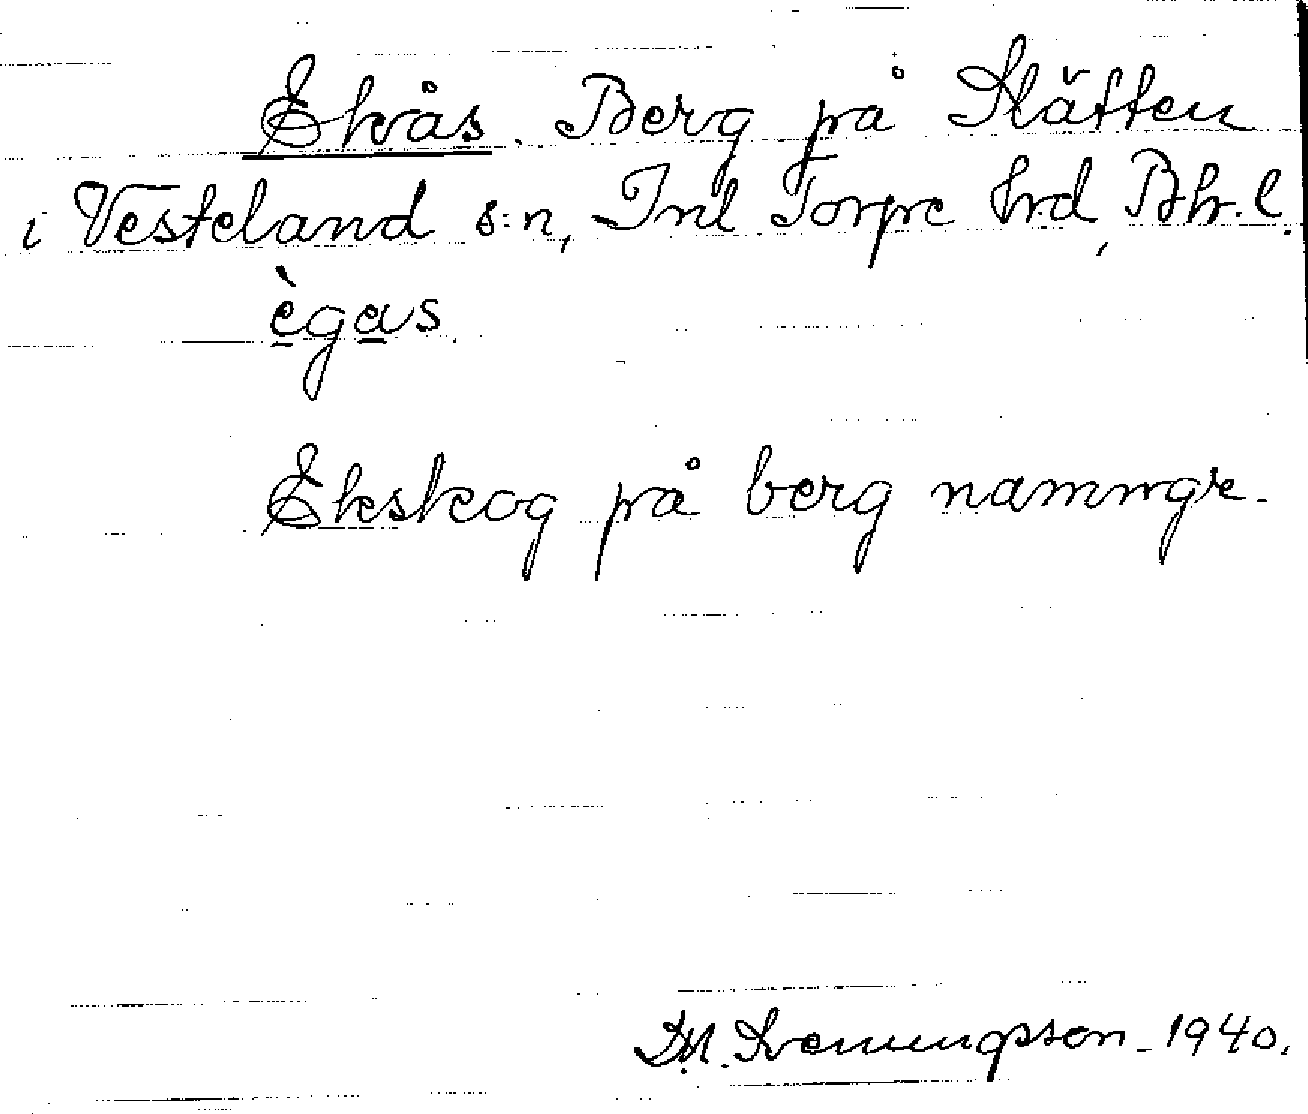 Ekås. Berg på Slätten
i Vesteland s:n, Inl Torpe hrd, Bhr.l.
ègas.
Ekskog på berg
Svenungsson 1940.